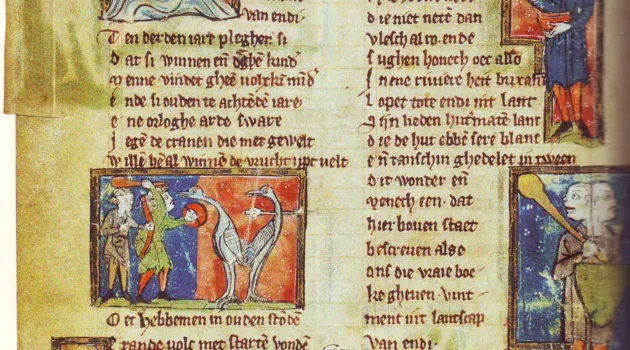 van endi·
Ten derden iare pleghen si
Dat si winnen eñ kind
Menne vindet gheē
Ende si ouden te achtedē iare
Ene orloghe arde sware
Jegē de cranen die met gewelt
Willē hē al winnē de vrucht upt velt
Oec hebbemen in ouden stodē
rande volc met starte vondē
die niet nett dan
vlesch al ro. ende
sughen honech oec also
In ene riviere heit
Lopet tote endi int lant
Zijn lieden hutmatē lanc
die de hut ebbē sere blanc
eñ tanschin ghedelet in tween
dit wonder eñ
menech een· dat
hier boven staet
bescreven also
ons die vraie boe
ke gheven· vint
ment int lantscap
van endi·